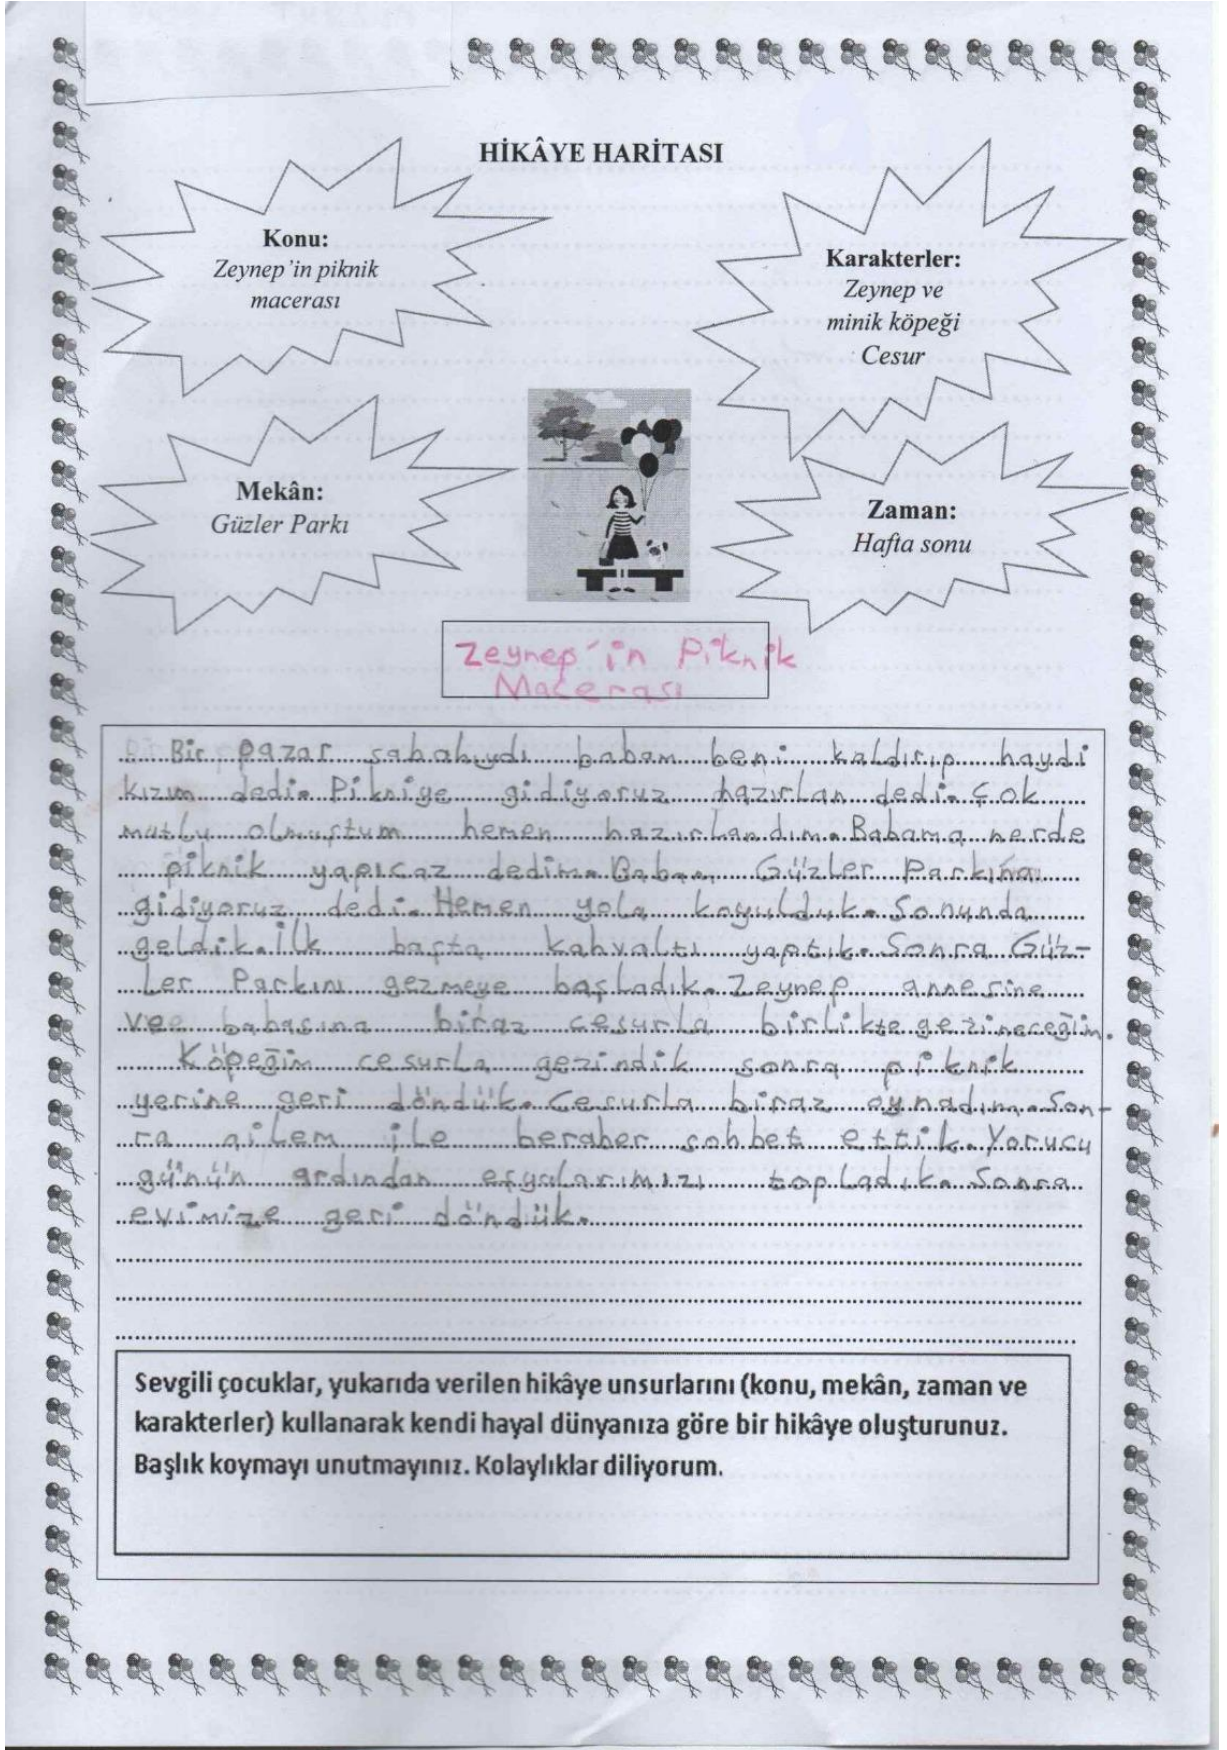 HİKÂYE HARİTASI
Konu:
Zeynep'in piknik
macerası
Karakterler:
Zeynep ve
minik köpeği
Cesur
Mekân:
Güzler Parkı
Zaman:
Hafta sonu
Zeynep'in Piknik
Macerası
Bir pazar sabahıydı babam beni kaldırıp haydi
kızım dedi. Pikniye gidiyoruz hazırlan dedi. Çok
mutlu olmuştum hemen hazırlandım. Babama nerde
piknik yapıcaz dedim. Babam Güzler Parkına
gidiyoruz dedi. Hemen yola koyulduk. Sonunda
geldik. İlk başta kahvaltı yaptık. Sonra Güz-
ler Parkını gezmeye başladık. Zeynep annesine
ve babasına biraz cesurla birlikte gezineceğim.
Köpeğim cesurla gezindik sonra piknik
yerine geri döndük. Cesurla biraz oynadım. Son-
ra ailem ile beraber sohbet ettik. Yorucu
günün ardından eşyalarımızı topladık. Sonra
evimize geri döndük.
Sevgili çocuklar, yukarıda verilen hikâye unsurlarını (konu, mekân, zaman ve
karakterler) kullanarak kendi hayal dünyanıza göre bir hikâye oluşturunuz.
Başlık koymayı unutmayınız. Kolaylıklar diliyorum.